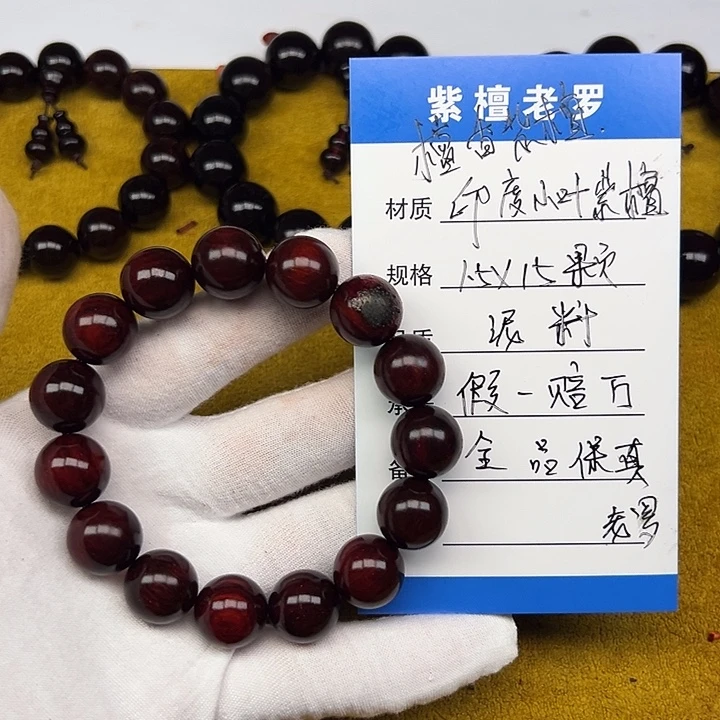 紫檀老罗
材质 印度小叶紫檀
规格 1.5X15颗
泥料
假一赔万
备 全品保真
老罗